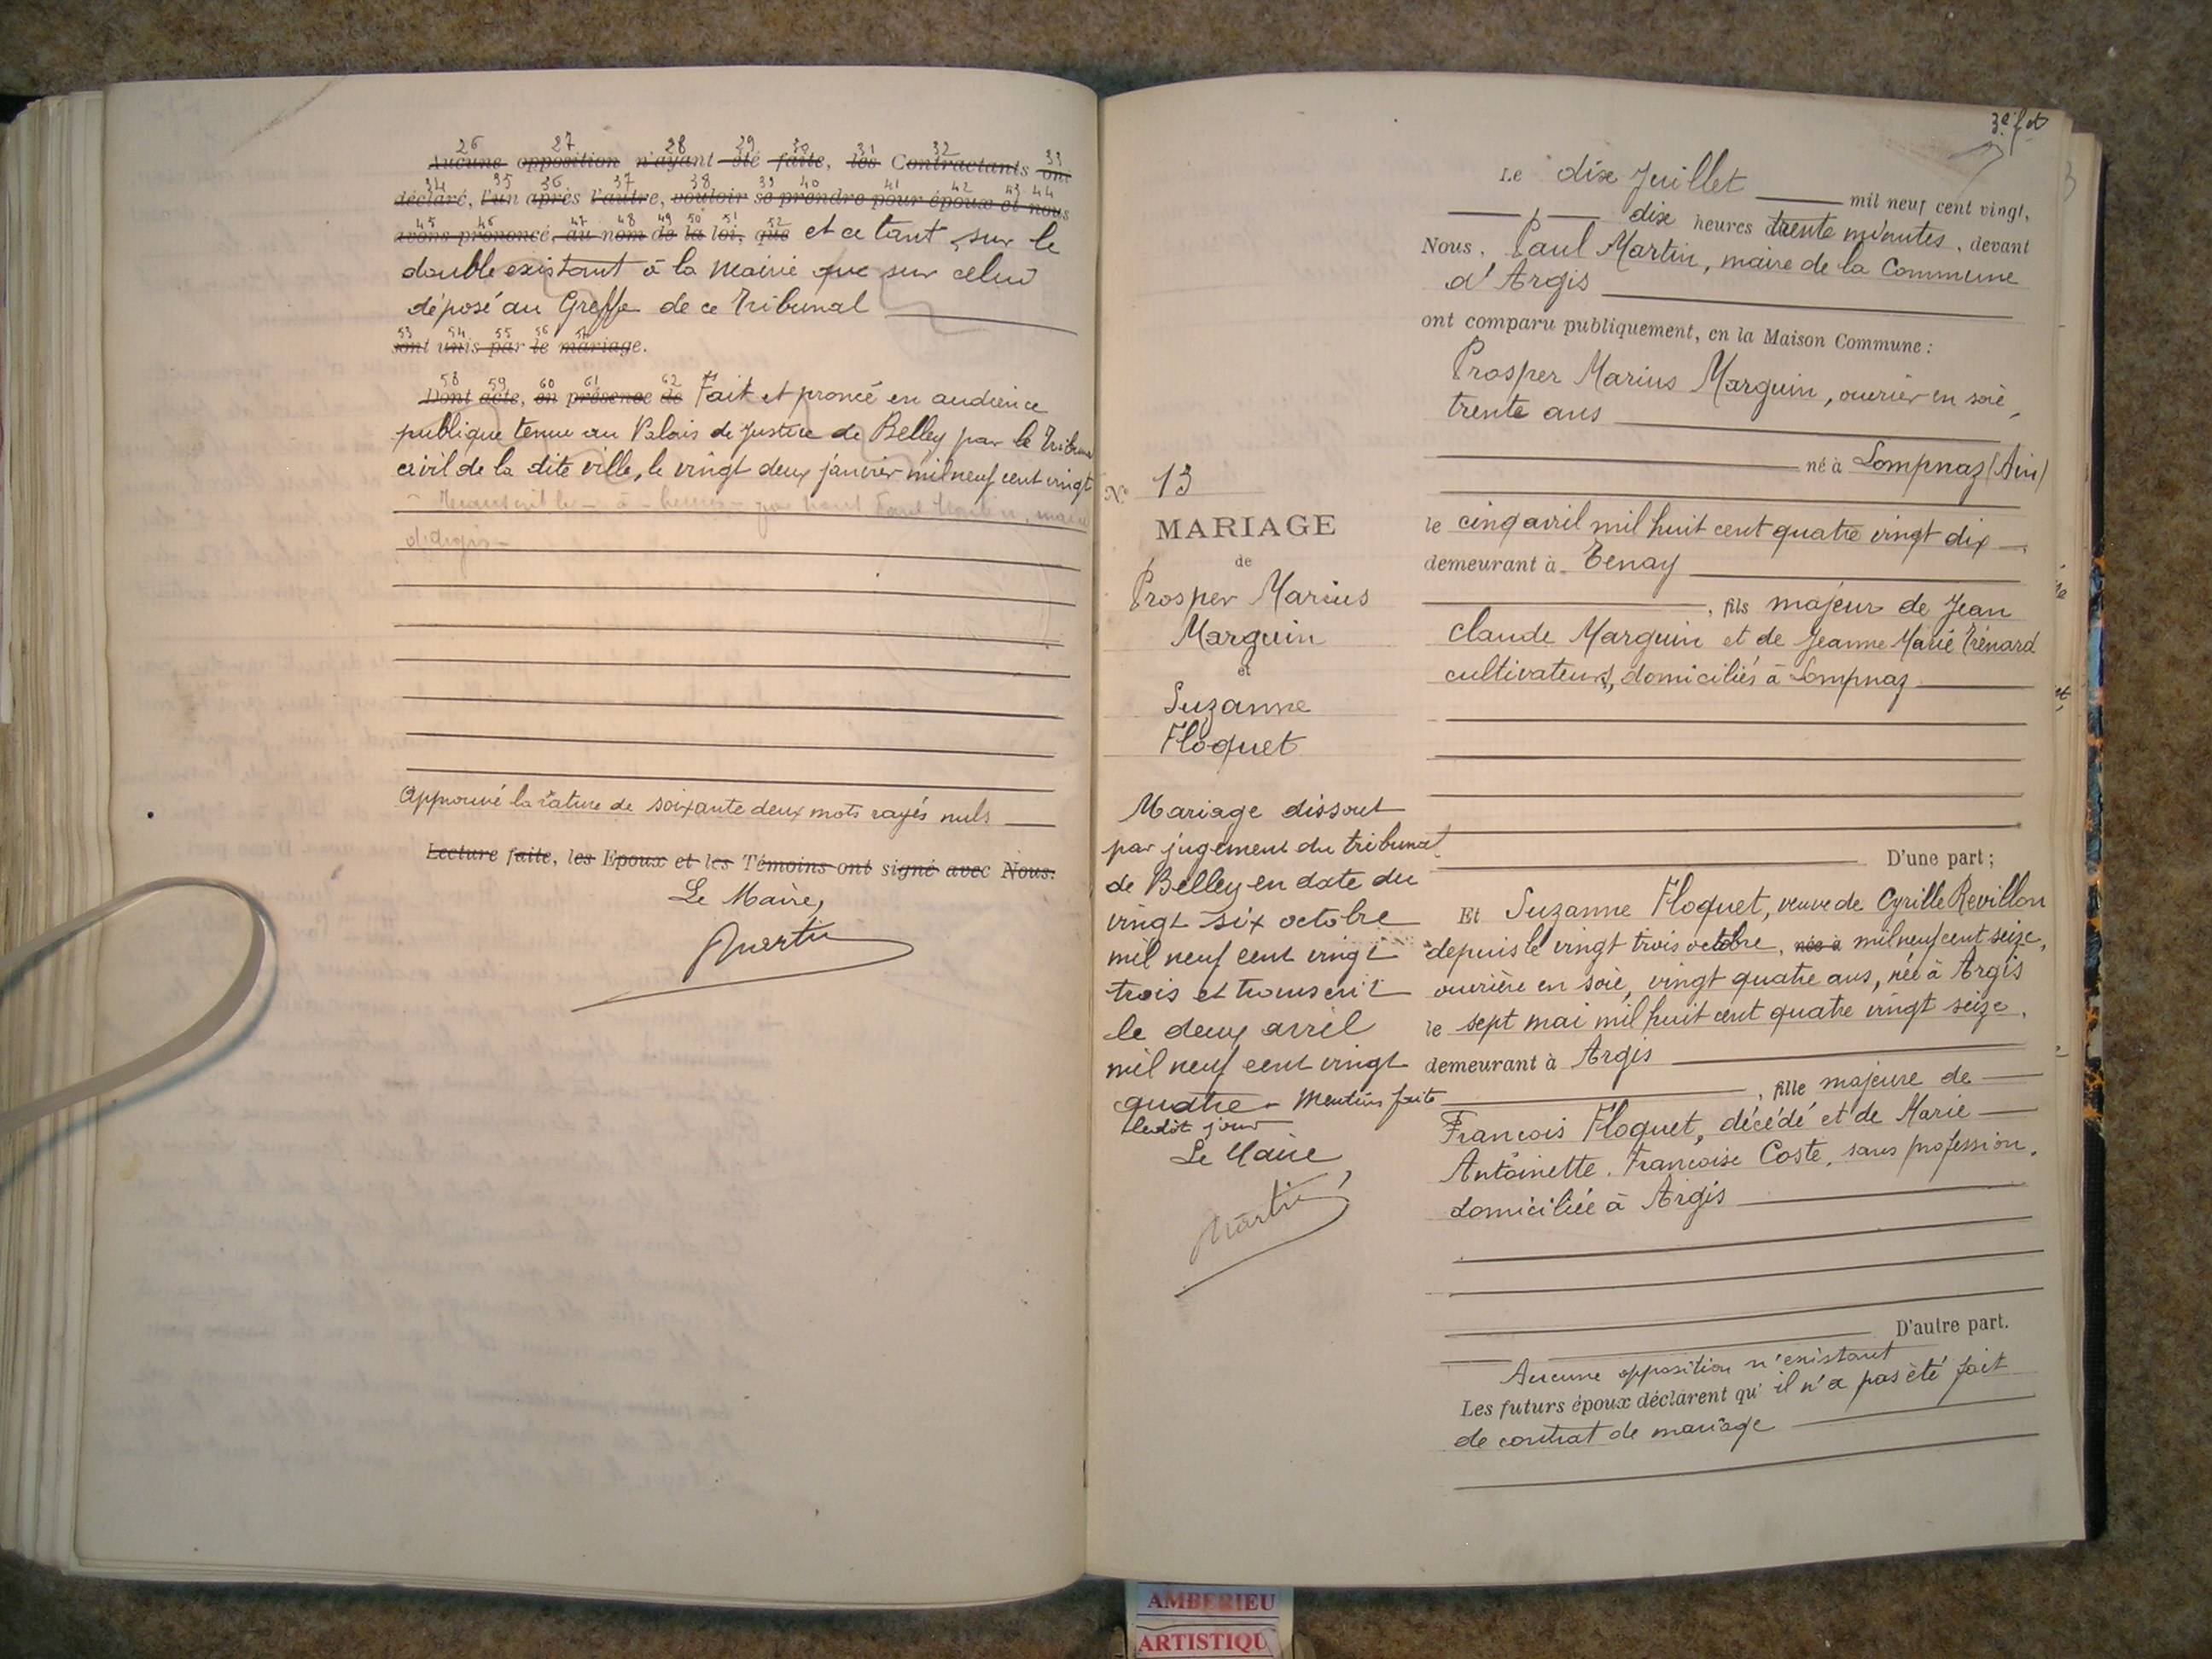 26 27 28 29 30 31 32 33
Aucune opposition n'ayant été faite, les Contractants ont
34 35 36 37 38 39 40 41 42 43 44
déclaré, l'un après l'autre, vouloir se prendre pour époux et nous
45 46 47 48 49 50 51 52
avons prononcé, au nom de la loi, que et ce tant sur le
double existant à la Mairie que sur celui
déposé au Greffe de ce Tribunal
53 54 55 56 57
sont unis par le mariage.
58 59 60 61 62
Dont acte, en présence de Fait et proncé en audience
publique tenue au Palais de Justice de Belley par le Tribunal
civil de la dite ville, le vingt deux janvier mil neuf cent vingt
Transcrit le - à - heures - par nous Paul Martin, maire
d'Argis -
Approuvé la rature de soixante deux mots rayés nuls
Lecture faite, les Epoux et les Témoins ont signé avec Nous.
Le Maire,
Martin
No 13
MARIAGE
de
Prosper Marius
Marguin
et
Suzanne
Floquet
Mariage dissout
par jugement du tribunal
de Belley en date du
vingt six octobre
mil neuf cent vingt
trois et transcrit
le deux avril
mil neuf cent vingt
quatre - Mention faite
ledit jour
Le Maire,
Martin
Le dix Juillet mil neuf cent vingt,
dix heures trente minutes, devant
Nous, Paul Martin, maire de la Commune
d'Argis
ont comparu publiquement, en la Maison Commune :
Prosper Marius Marguin, ouvrier en soie,
trente ans
né à Lompnaz (Ain)
le cinq avril mil huit cent quatre vingt dix
demeurant à Tenay
, fils majeur de Jean
Claude Marguin et de Jeanne Marie Trénard
cultivateurs, domiciliés à Lompnaz
D'une part ;
Et Suzanne Floquet, veuve de Cyrille Revillon
depuis le vingt trois octobre, née à mil neuf cent seize,
ouvrière en soie, vingt quatre ans, née à Argis
le sept mai mil huit cent quatre vingt seize,
demeurant à Argis
, fille majeure de
François Floquet, décédé et de Marie
Antoinette Françoise Coste, sans profession,
domiciliée à Argis
D'autre part.
Aucune opposition n'existant
Les futurs époux déclarent qu'il n'a pas été fait
de contrat de mariage
AMBERIEU
ARTISTIQU